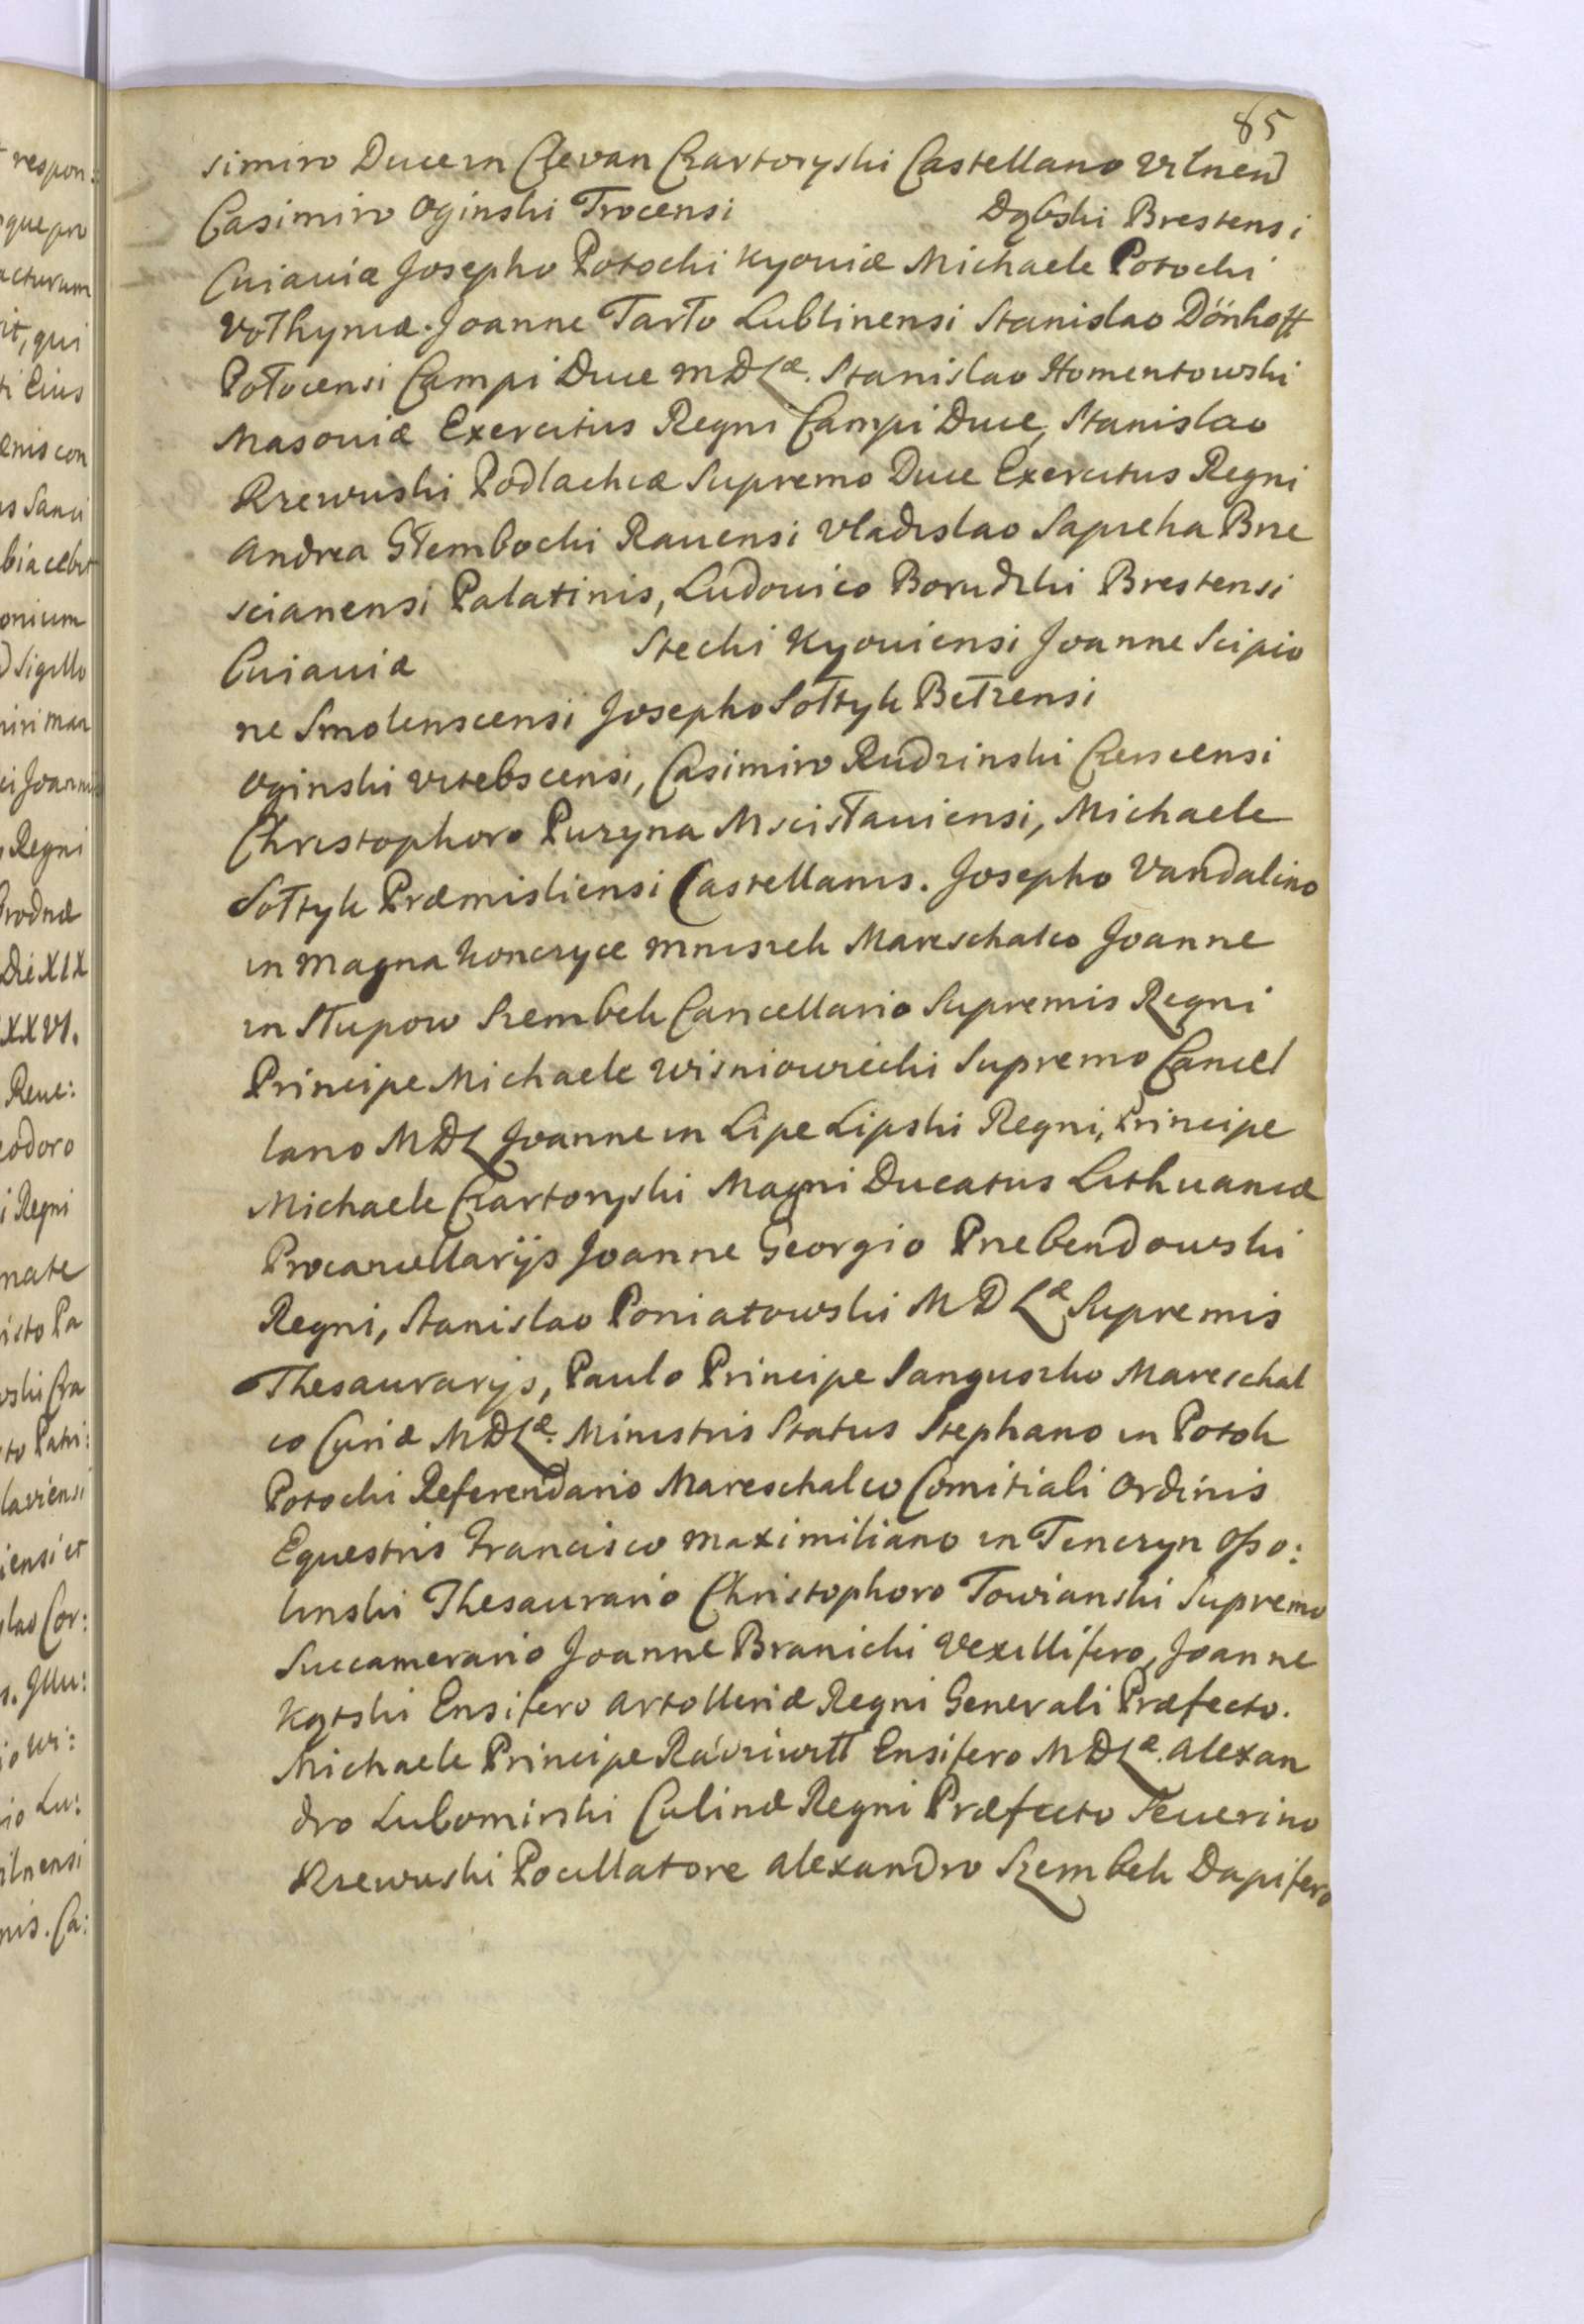 85
simiro Duce in Clevan Czartoryski Castellano Vilnen
Casimiro Oginski Trocensi Dąbski Brestensi
Cuiauiæ Josepho Potocki Kyouiæ Michaele Potocki
Vołhyniæ. Joanne Tarło Lublinensi Stanislao Dönhoff
Połocensi Campi Duce MDLæ. Stanislao Homentowski
Masouiæ Exercitus Regni Campi Duce, Stanislao
Rzewuski Podlachiæ Supremo Duce Exercitus Regni
Andrea Głembocki Rauensi Vladislao Sapieha Brze
scianensi Palatinis, Ludouico Borudzki Brestensi
Cuiauiæ Stecki Kyouiensi Joanne Scipio
ne Smolenscensi Josepho Sołtyk Bełzensi
Oginski Vitebscensi, Casimiro Rudzinski Czerscensi
Christophoro Puzyna Mscisłauiensi, Michaele
Sołtyk Præmisliensi Castellanis. Josepho Vandalino
in Magna Konczyce Mniszek Mareschalco Joanne
in Słupow Szembek Cancellario Supremis Regni
Principe Michaele Wisniowiecki Supremo Cancel
lario MDL Joanne in Lipe Lipski Regni, Principe
Michaele Czartoryski Magni Ducatus Lithuaniæ
Procancellarijs Joanne Georgio Przebendowski
Regni, Stanislao Poniatowski MDLæ Supremis
Thesaurarijs, Paulo Principe Sanguszko Mareschal
co Curiæ MDLæ. Ministris Status Stephano in Potok
Potocki Referendario Mareschalco Comitiali Ordinis
Equestris Francisco Maximiliano in Tenczyn Osso:
linski Thesaurario Christophoro Towianski Supremo
Succamerario Joanne Branicki Vexillifero, Joanne
Kątski Ensifero Artolleriæ Regni Generali Præfecto.
Michaele Principe Radziwiłł Ensifero MDLæ. Alexan
dro Lubomirski Culinæ Regni Præfecto Seuerino
Rzewuski Pocillatore Alexandro Szembek Dapifero
respon:
que pro
acturum
it, qui
ti Eius
enis con
Sigillo
Regni
Die XIX
XXVI.
Reue:
eodoro
i Regni
nate
isto Pa
wski Cra
to Patri:
lauiensi
iensi et
lao Cor:
s. Illu:
io Wi:
io Lu:
ilnensi
nis. Ca: